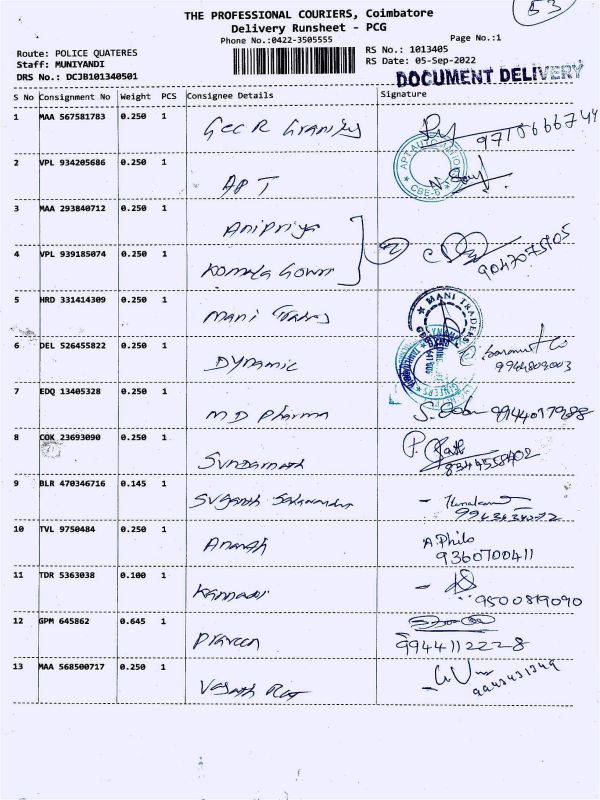 53
THE PROFESSIONAL COURIERS, Coimbatore
Delivery Runsheet - PCG
Phone No.:0422-3505555
Page No.:1
Route: POLICE QUATERES
RS No.: 1013405
Staff: MUNIYANDI
RS Date: 05-Sep-2022
DRS No.: DCJB101340501
DOCUMENT DELIVERY
S No Consignment No Weight PCS Consignee Details Signature
1 MAA 567581783 0.250 1
2 VPL 934205686 0.250 1 APT
APT AUTO
CBE-6
3 MAA 293840712 0.250 1 Anipriya
4 VPL 939185074 0.250 1 Komala Gowri 2
5 HRD 331414309 0.250 1 Mani Traders
MANI TRADERS
6 DEL 526455822 0.250 1 Dynamic
9944809003
7 EDQ 13405328 0.250 1 MD Pharma 9944017988
8 COK 23693090 0.250 1 8344558402
9 BLR 470346716 0.145 1
10 TVL 9750484 0.250 1 Anandh A Philo
9360700411
11 TDR 5363038 0.100 1 9500819090
12 GPM 645862 0.645 1 Praveen 9944112228
13 MAA 568500717 0.250 1